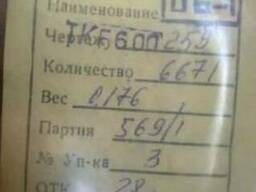 Наименование
Чертеж ТК5600 259
Количество 6671
Вес 0,176
Партия 569/1
№ Уп-ка 3
ОТК 28